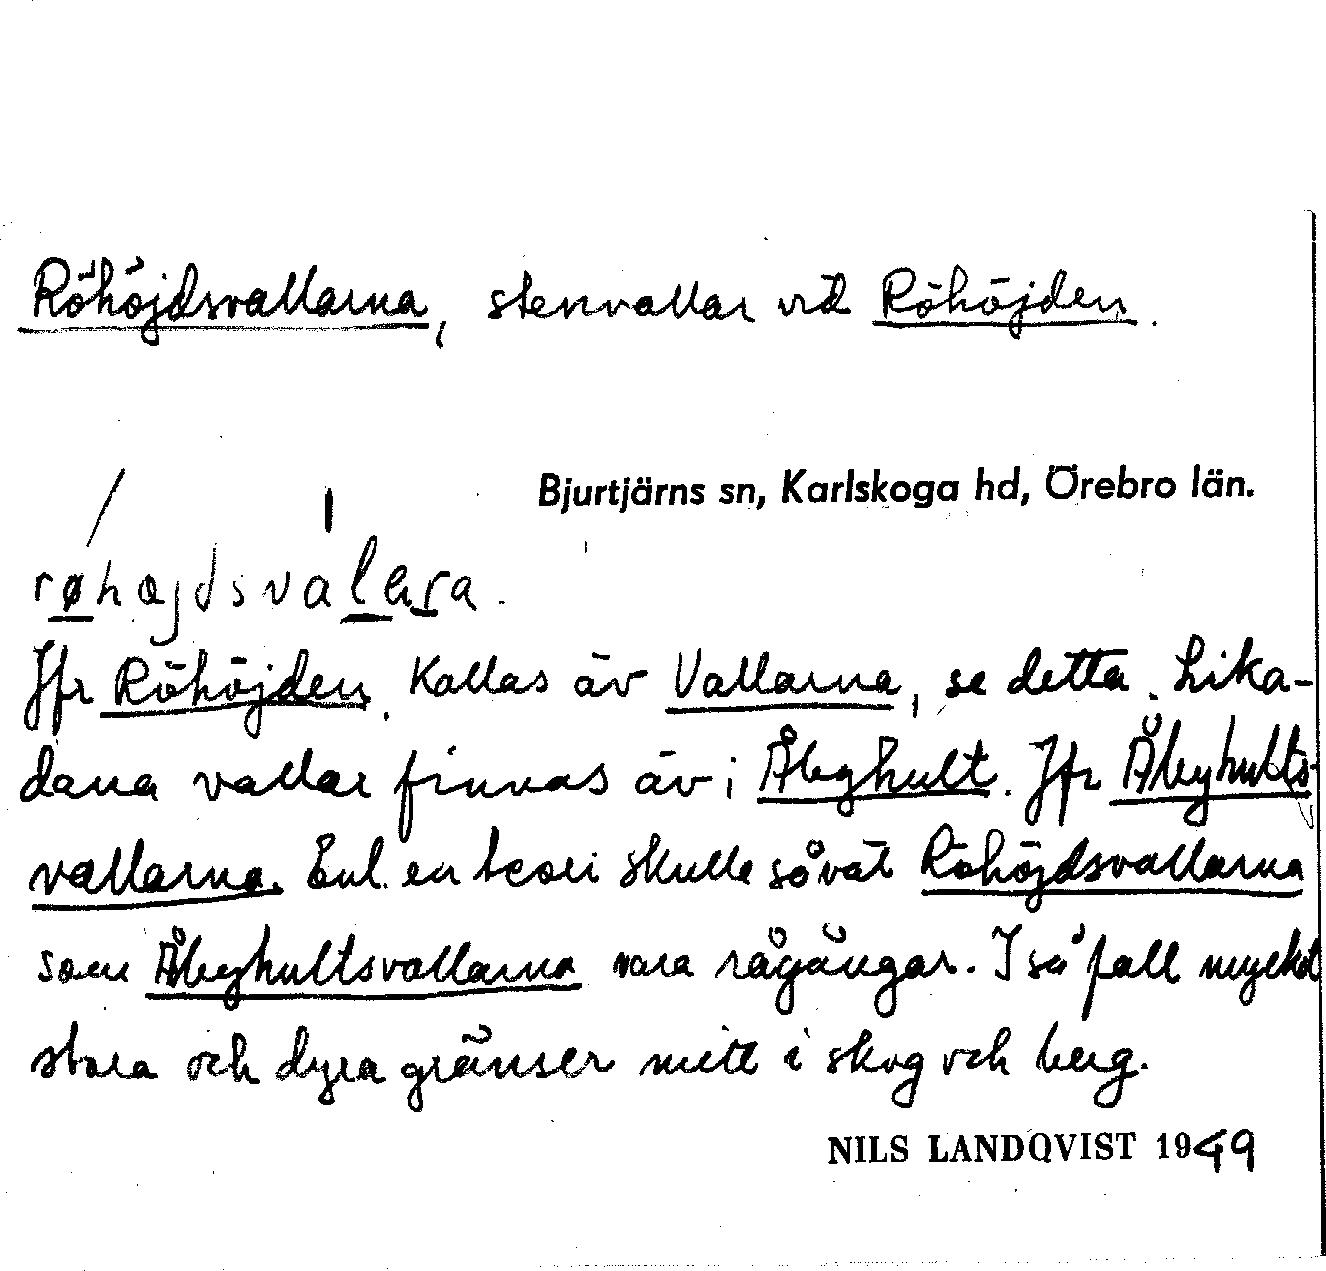 Röhöjdsvallarna, stenvallar vid Röhöjden.
Bjurtjärns sn, Karlskoga hd, Örebro län.
Jfr Röhöjden. Kallas äv Vallarna, se detta. Lika-
dana vallar finnas äv i Åbyhult. Jfr Åbyhults-
vallarna. Enl. en teori skulle såväl Röhöjdsvallarna
som Åbyhultsvallarna vara rågångar. I så fall mycket
stora och dyra gränser mitt i skog och berg.
NILS LANDQVIST 1949